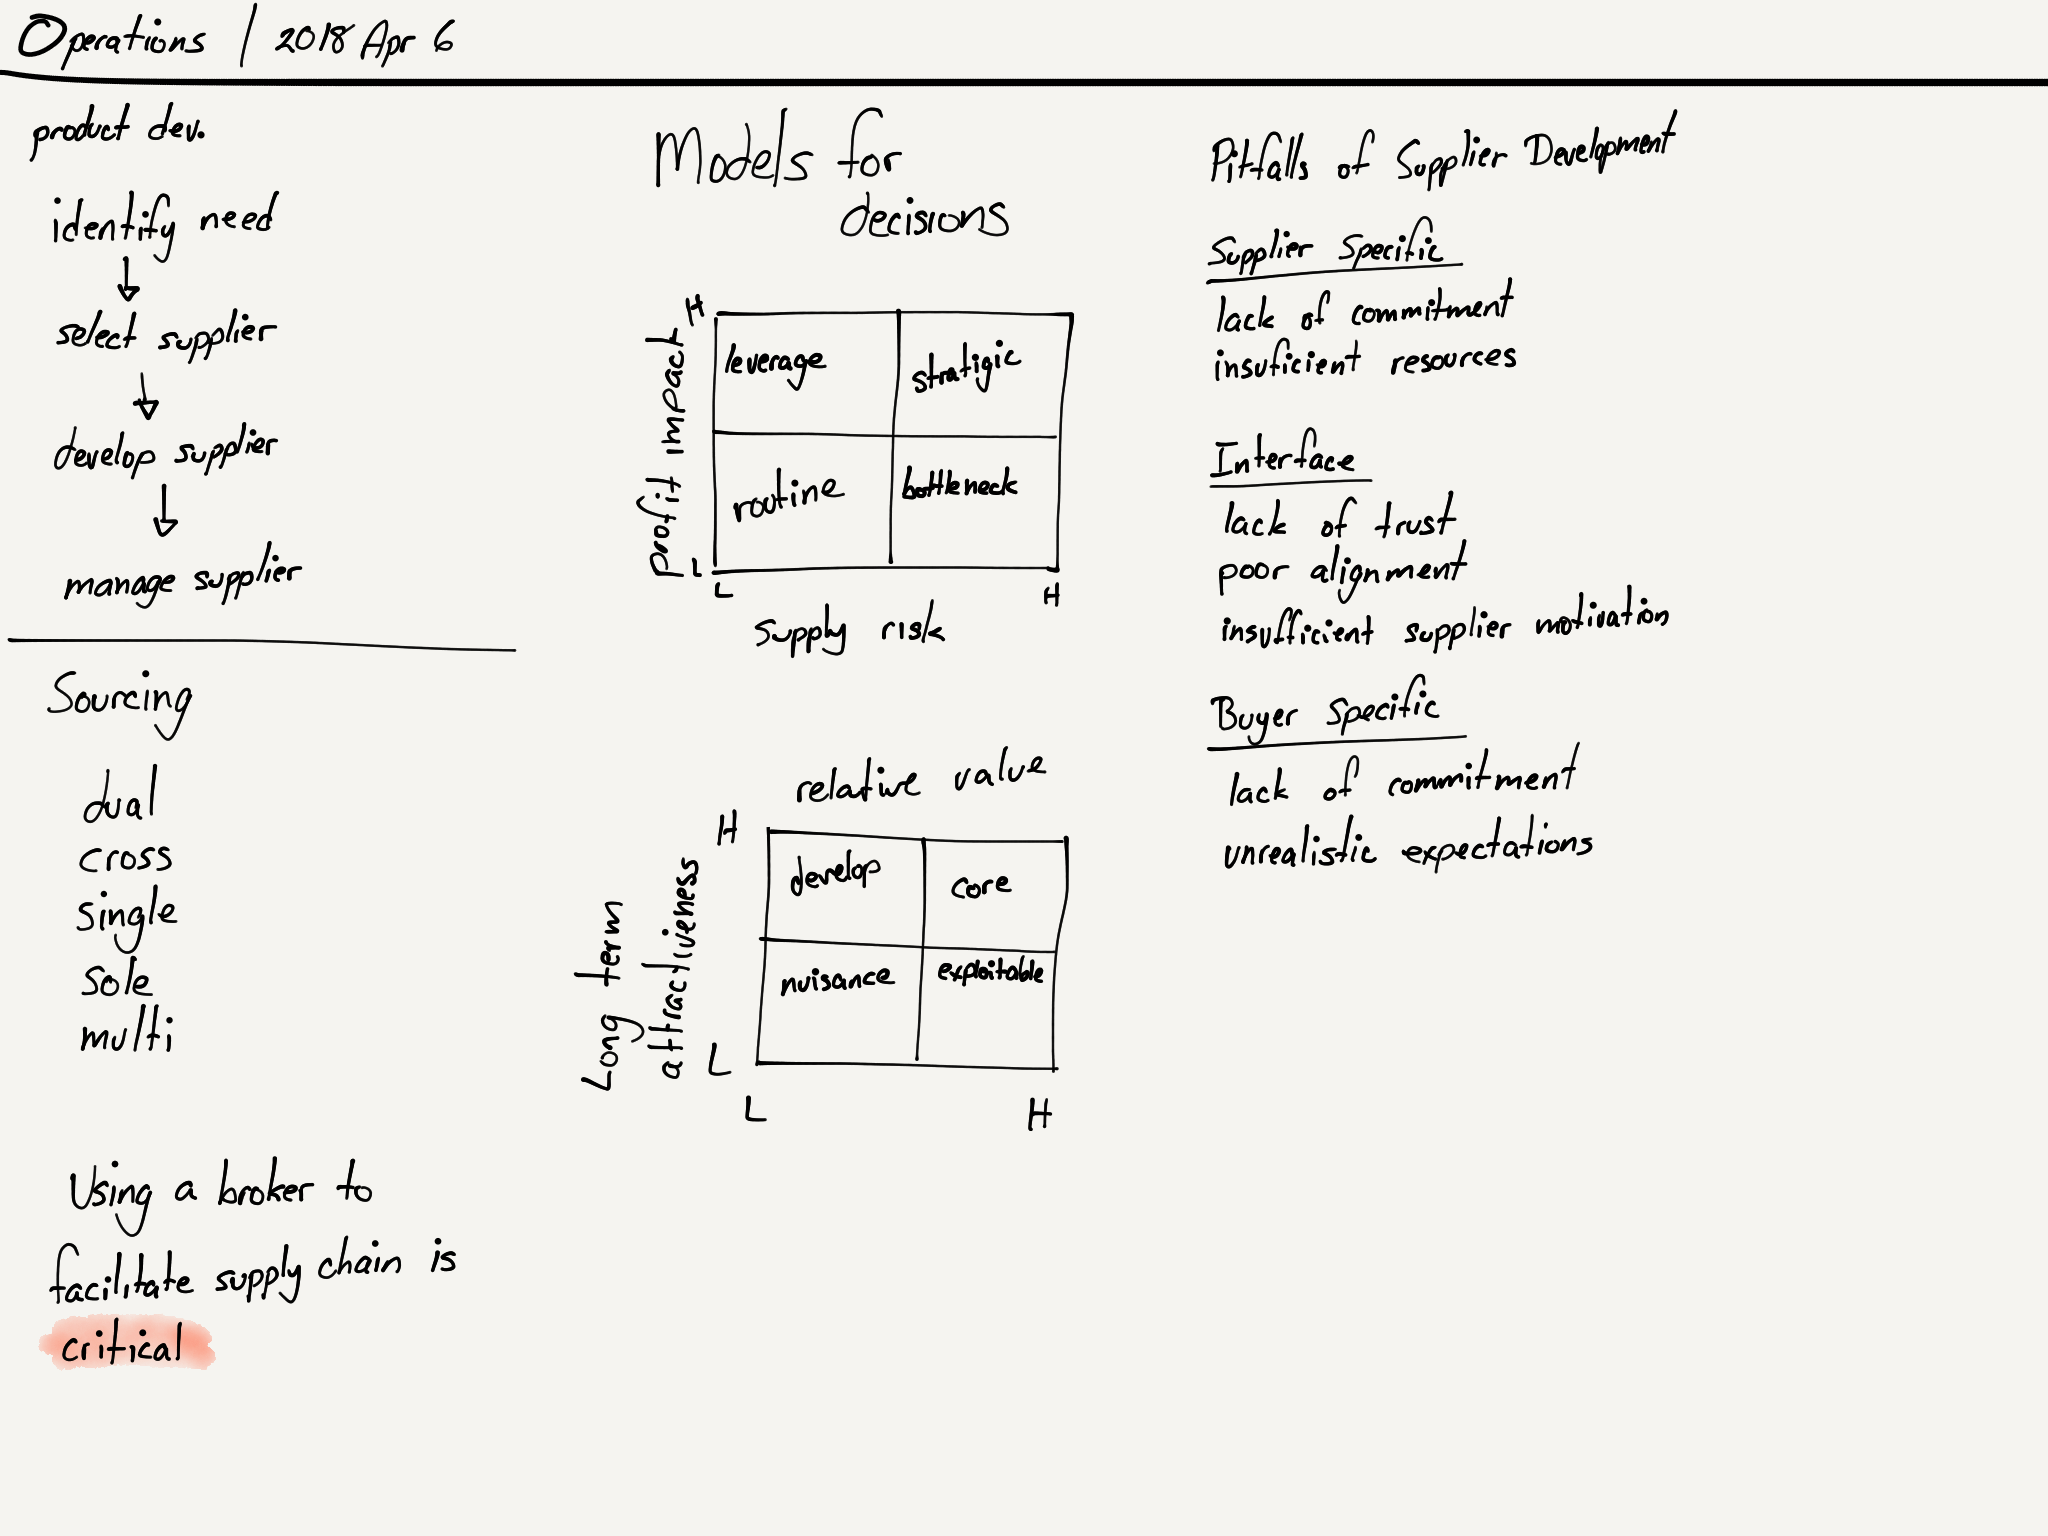 Operations / 2018 Apr 6
product dev.
identify need
select supplier
develop supplier
manage supplier
Sourcing
dual
cross
single
sole
multi
Using a broker to
facilitate supply chain is
critical
Models for
decisions
H
Profit impact
leverage
stratigic
routine
bottleneck
L
L
H
supply risk
relative value
H
Long term
attractiveness
develop
core
nuisance
exploitable
L
L
H
Pitfalls of Supplier Development
Supplier Specific
lack of commitment
insuficient resources
Interface
lack of trust
poor alignment
insufficient supplier motivation
Buyer Specific
lack of commitment
unrealistic expectations